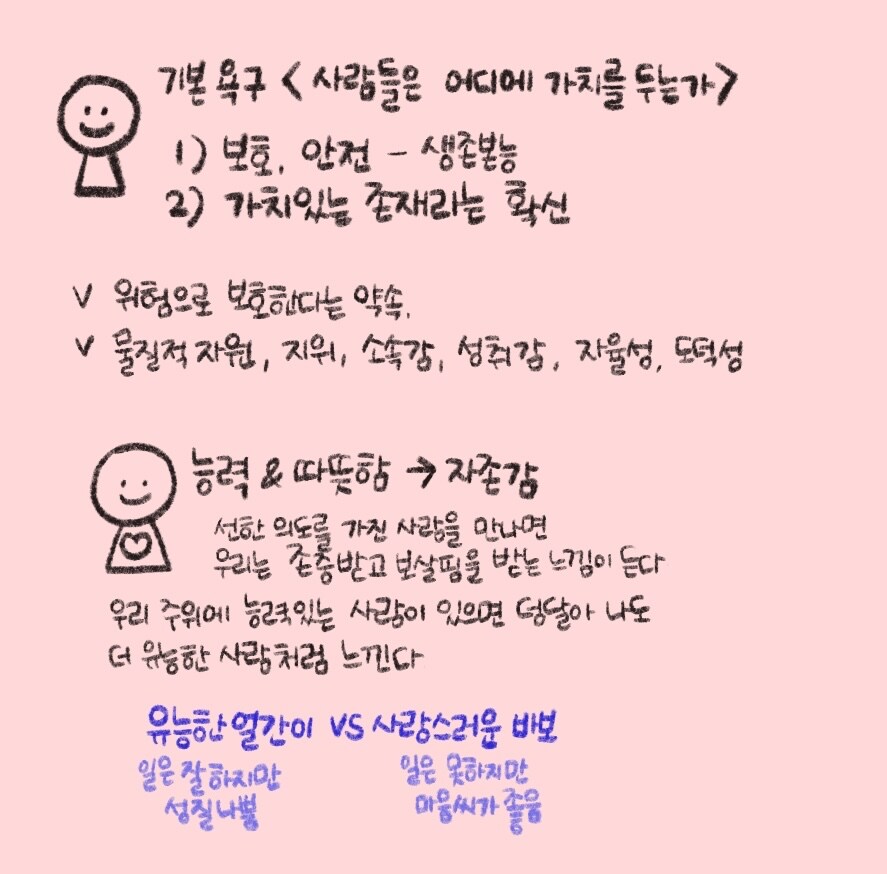 기본 욕구 <사람들은 어디에 가치를 두는가>
1) 보호, 안전 - 생존본능
2) 가치있는 존재라는 확신
v 위험으로 보호한다는 약속.
v 물질적 자원, 지위, 소속감, 성취감, 자율성, 도덕성
능력 & 따뜻함 → 자존감
선한 의도를 가진 사람을 만나면
우리는 존중받고 보살핌을 받는 느낌이 든다
우리 주위에 능력있는 사람이 있으면 덩달아 나도
더 유능한 사람처럼 느낀다
유능한 얼간이 VS 사랑스러운 바보
일은 잘하지만
성질나쁨
일은 못하지만
마음씨가 좋음